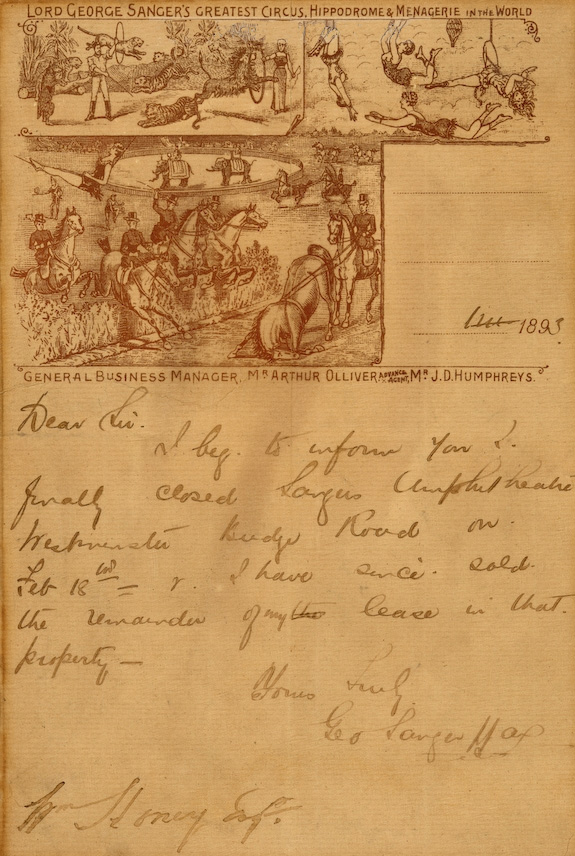 LORD GEORGE SANGER'S GREATEST CIRCUS, HIPPODROME & MENAGERIE IN THE WORLD
1893
GENERAL BUSINESS MANAGER, MR ARTHUR OLLIVER ADVANCE AGENT, MR J. D. HUMPHREYS.
Dear Sir.
I beg. to inform you I.
finally closed Sangers Amphitheatre
Westminster Bridge Road on.
Feb 18 I have since. sold.
the remainder of my the lease in that.
property —
Yours Truly
Geo Sanger
Wm Esqr.